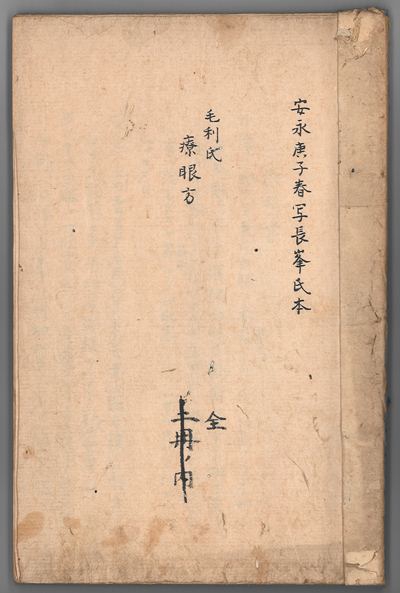 安永庚子春写長峯氏本
毛利氏
療眼方
全
二冊ノ内